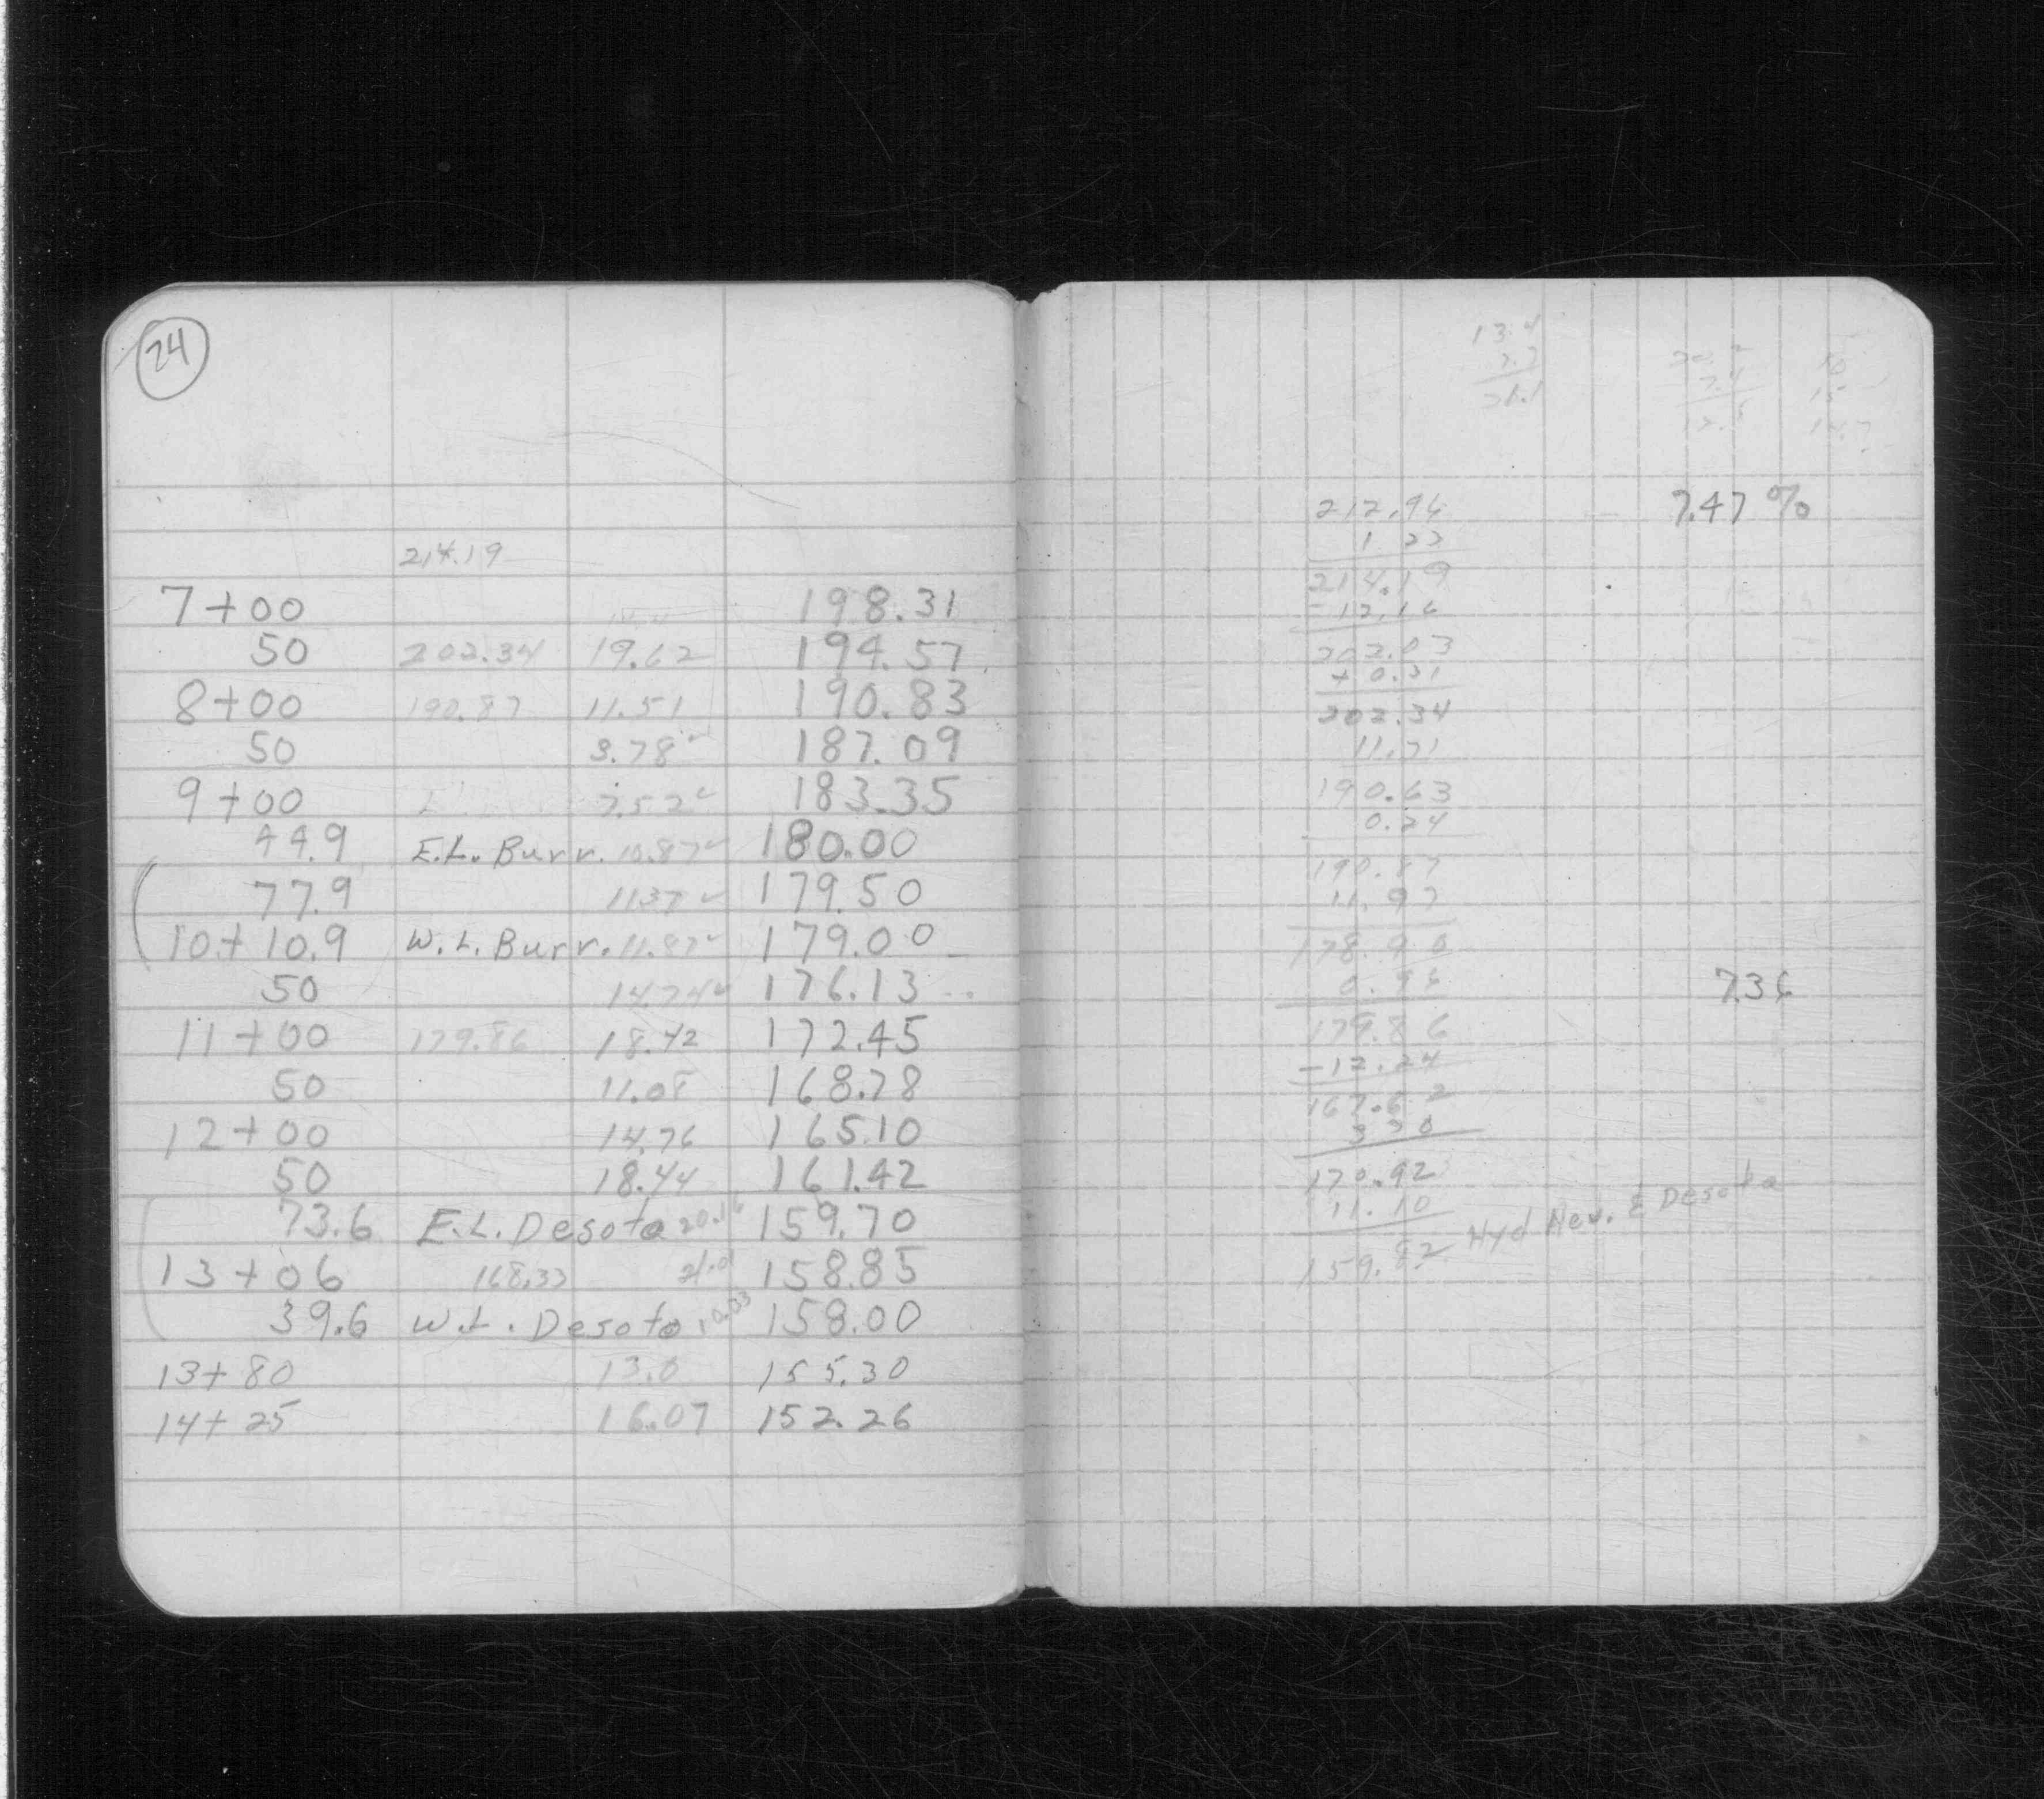 24
214.19
7+00 198.31
50 202.34 19.62 194.57
8+00 190.87 11.51 190.83
50 3.78 187.09
9+00 7.52 183.35
44.9 E.L. Burr. 10.87 180.00
77.9 11.37 179.50
10+10.9 W.L. Burr. 11.87 179.00
50 14.74 176.13
11+00 179.86 18.42 172.45
50 11.08 168.78
12+00 14.76 165.10
50 18.44 161.42
73.6 E.L. Desoto 20.16 159.70
13+06 168.33 21.01 158.85
39.6 W.L. Desoto 10.33 158.00
13+80 13.0 155.30
14+25 16.07 152.26
13.4
212.96 7.47%
1.23
214.19
-12.16
202.03
+0.31
202.34
11.71
190.63
0.24
190.87
11.97
178.90
0.96 7.36
179.86
-12.24
167.62
3.30
170.92
11.10 Hyd Nev. & Desoto
159.82